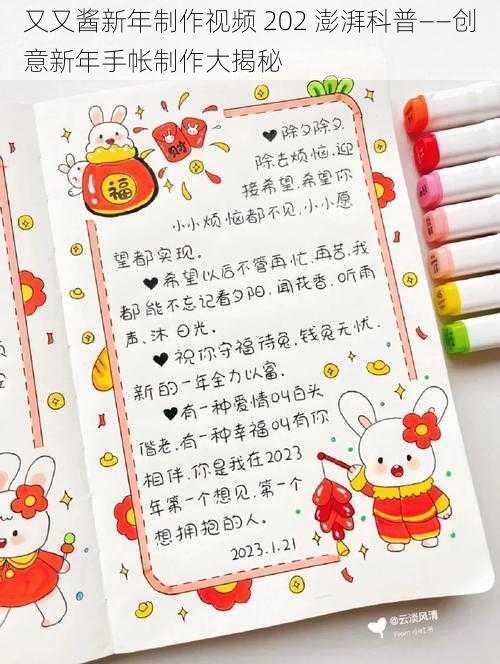 又又酱新年制作视频 202 澎湃科普——创
意新年手帐制作大揭秘
财
福
♥除夕除夕.
除去烦恼.迎
接希望.希望你
小小烦恼都不见.小小愿
望都实现。
♥希望以后不管再忙.再苦.我
都能不忘记看夕阳.闻花香.听雨
声.沐日光。
♥祝你守福待兔.钱兔无忧.
新的一年全力以富.
♥有一种爱情叫白头
偕老.有一种幸福叫有你
相伴.你是我在2023
年第一个想见.第一个
想拥抱的人。
2023.1.21
@云淡风清
From 小红书